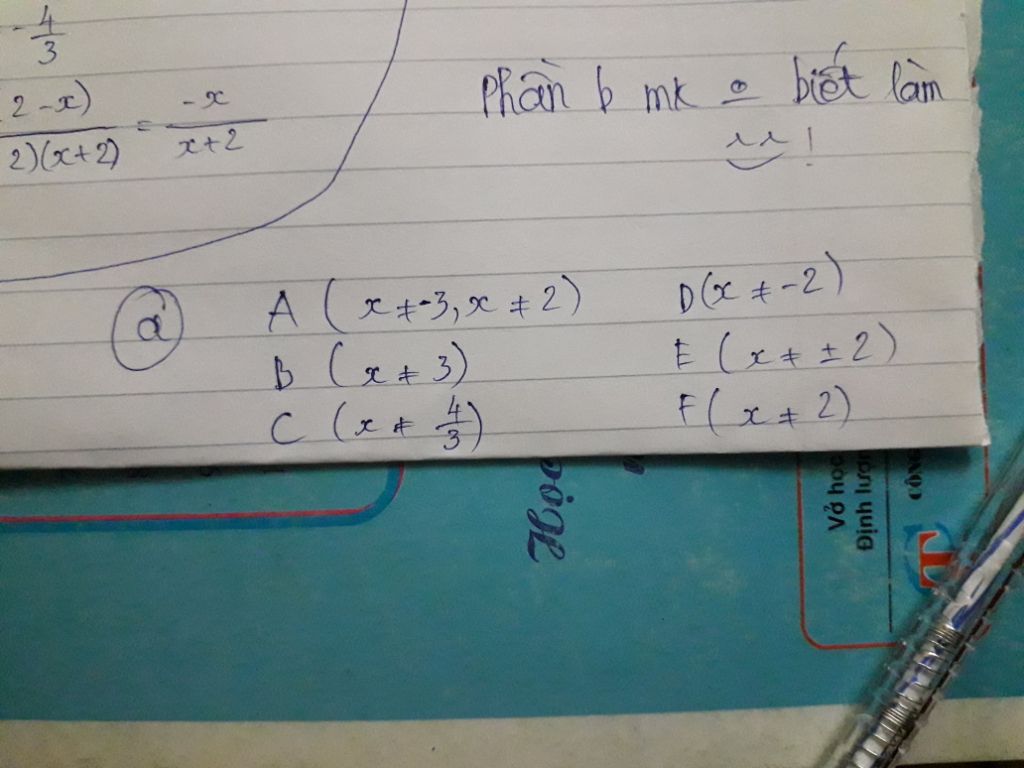 - 4/3
2-x) / 2)(x+2) = -x / x+2
Phần b mk o biết làm
!
a
A (x ≠ -3, x ≠ 2)
D (x ≠ -2)
B (x ≠ 3)
E (x ≠ ± 2)
C (x ≠ 4/3)
F (x ≠ 2)
Học
Vở học
Định lượn
CÔNG
T